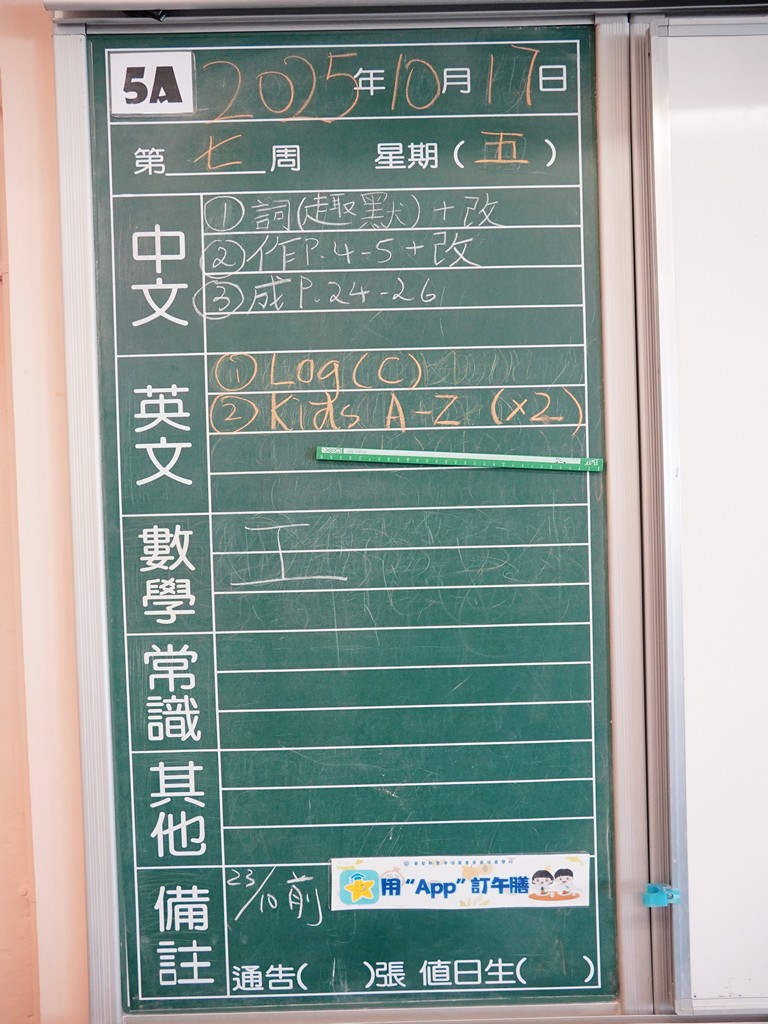 5A 2025年10月17日
第七周 星期(五)
中文
①詞(趣默)+改
②作P.4-5+改
③成P.24-26
英文
①Log(C)
②Kids A-Z (×2)
數學
工
常識
其他
備註
23/10前
用“App”訂午膳
通告( )張 值日生( )